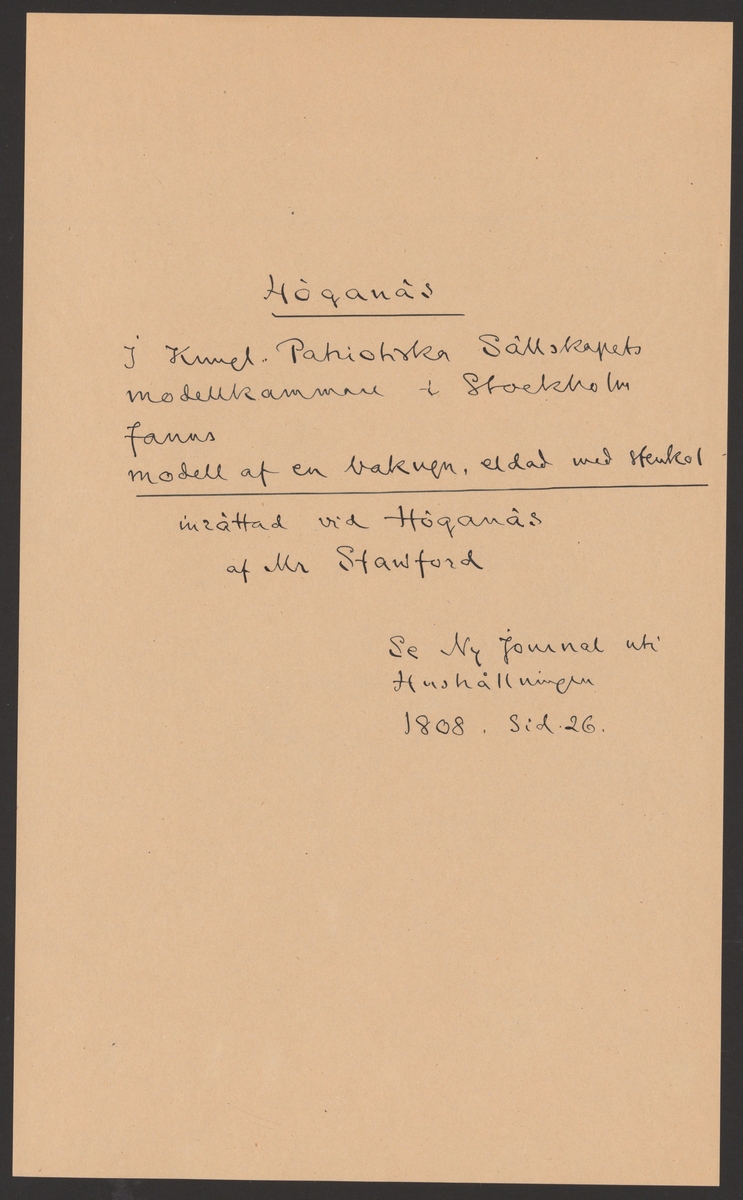 Höganäs
I Kungl. Patriotiska Sällskapets
modellkammare i Stockholm
fanns
modell af en bakugn, eldad med stenkol
inrättad vid Höganäs
af Mr Stawford
Se Ny Journal uti
Hushållningen
1808. Sid. 26.